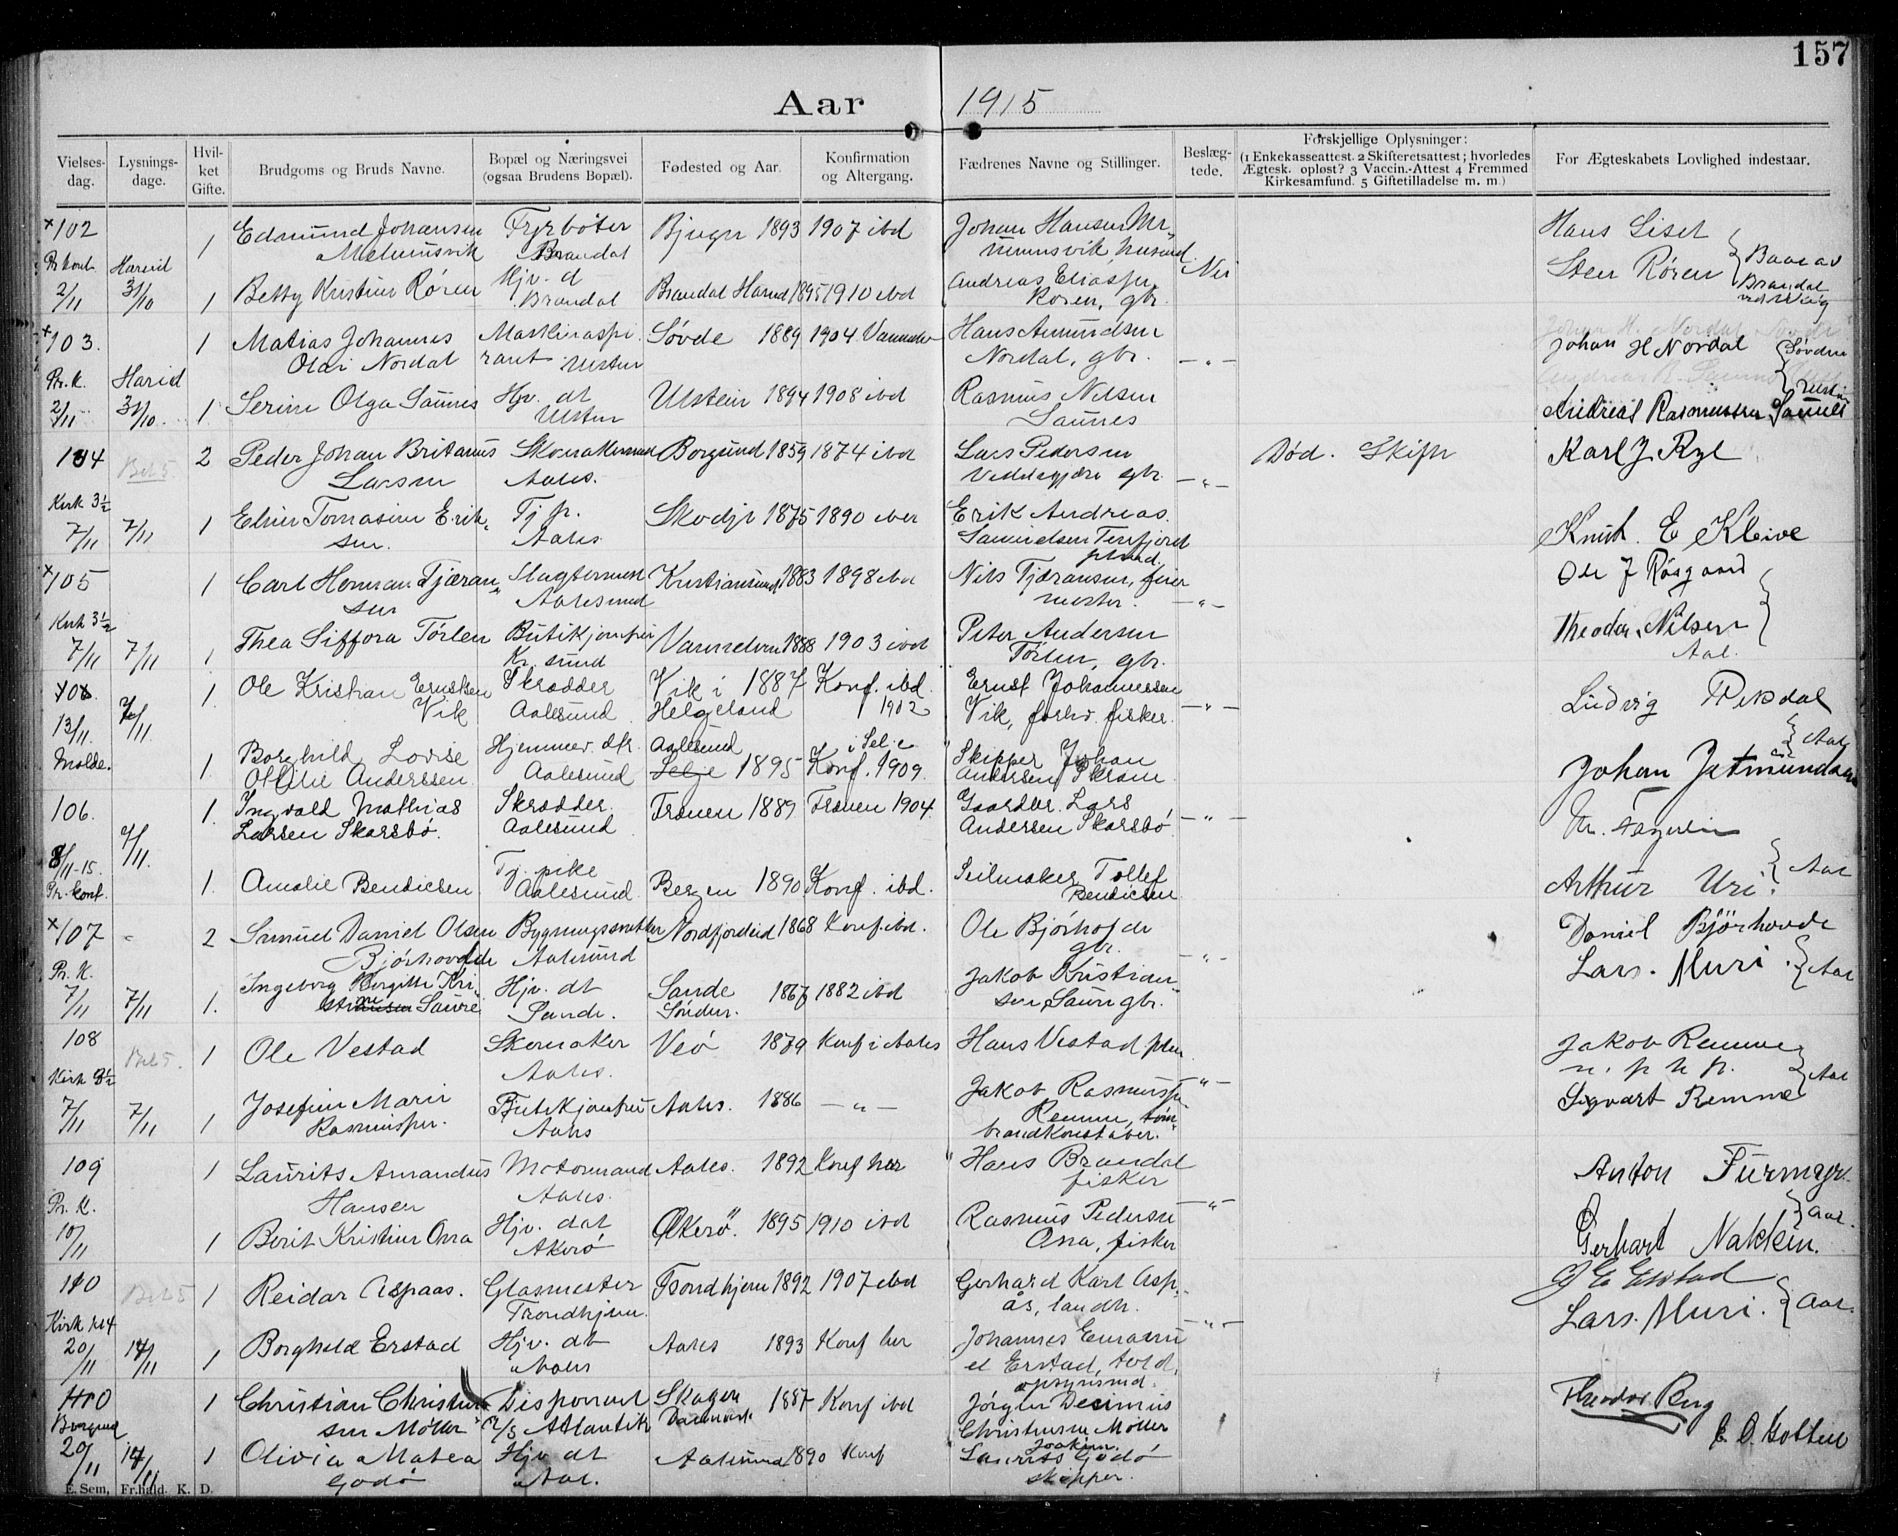 157
Aar 1915
Vielses-dag. Lysnings-dage. Hvil-ket Gifte. Brudgoms og Bruds Navne. Bopæl og Næringsvei (ogsaa Brudens Bopæl). Fødested og Aar. Konfirmation og Altergang. Fædrenes Navne og Stillinger. Beslæg-tede. Forskjellige Oplysninger: (1 Enkekasseattest. 2 Skifteretsattest; hvorledes Ægtesk. opløst? 3 Vaccin.-Attest 4 Fremmed Kirkesamfund. 5 Giftetilladelse m. m.) For Ægteskabets Lovlighed indestaar.
×102 1 Edmund Johansen Fyrbøter Bjugn 1893 1907 ibd Johan Hansen Hans Liset
Melumsvik Brandal
Pr. kont. Hareid Hjv. d Nei Sten Røren Brandal
2/11 31/10 1 Betty Kristine Røren Brandal Brandal Hareid 1895 1910 ibd Andreas Eliassen
Røren, gbr.
×103. 1 Matias Johannes Maskinaspi Søvde 1889 1904 Vannelven Hans Amundsen Johan H Nordal Søvden
Olai Nordal rant Ulsten Nordal, gbr. — „ —
Pr. K. Hareid
2/11 31/10 1 Serine Olga Saunes Hjv. dt Ulstein 1894 1908 ibd Rasmus Nilsen Andreas Rasmussen Saunes
Ulsten Saunes
104 Bet 5. 2 Peder Johan Britanus Skomakersvend Borgund 1859 1874 ibd Lars Pedersen Død. Skifte Karl J Ryl
Larsen Aales. gbr. — „ —
Kirk 3½
7/11 7/11 1 Eline Tomasine Erik- Tj. p. Skodje 1875 1890 Erik Andreas Knut E Kleive
sen. Aales Samuelsen Tenfjord
×105 1 Carl Herman Tjæran- Slagtersvend Kristiansund 1883 1898 ibd Nils Tjæransen, feier Ole J Røsgaard
sen Aalesund mester. — „ —
Kirk 3½
7/11 7/11 1 Thea Siffora Tørlen Butikjomfru Vannelven 1888 1903 ibd Peter Andersen Theodor Nilsen
Kr. sund Tørlen, gbr. Aal.
1 Ole Kristian Ernstsen Skrædder Vik i 1887 Konf. ibd. Ernst Johannessen Ludvig Rekdal
13/11. 7/11 Vik Aalesund Helgeland 1902 Vik, forhv. fisker. — „ — Aal
Molde. 1. Borghild Lovise Hjemmev. dtr. Aalesund i Selje Skipper Johan Johan Jetmundsen
Ottilie Anderssen Aalesund Selje 1895 Konf. 1909. Andersen Skram
106. 1. Ingvald Mathias Skrædder. Fræuen 1889 Fræuen 1904. Gaardbr. Lars
Larsen Skarsbø. Aalesund Andersen Skarsbø. — „ —
8/11-15. 7/11. Aal
Pr. kont. 1. Amalie Bendicsen Tj. pike Bergen 1890 Konf. ibd. Seilmaker Tollef Arthur Uri.
Aalesund. Bendicsen
×107 2 Samuel Daniel Olsen Bygningssnekker Nordfjordeid 1868 Konf. ibd. Ole Bjørhovde Daniel Bjørhovde
Bjørhovde Aalesund gbr. — „ —
Pr. K. Lars. Muri. Aal
7/11 7/11 1. Ingeborg Bergitte Kri- Hjv. dt Sande 1867 1882 ibd Jakob Kristian-
stine Saure Sande. Søndm. sen Saure gbr.
108 Bet 5. 1 Ole Vestad Skomaker Veø 1879 Konf i Aales Hans Vestad Jakob Remme
Kirk 3½ Aales. — „ — Aal
7/11 7/11 1 Josefine Marie Butikjomfru Aales. 1886 — „ — Jakob Rasmussen Sigvart Remme
Rasmussen. Aales Remme,
brandkonstabel.
109 1 Laurits Amandus Motormand Aales. 1892 Konf her Hans Brandal Anton Furmyr.
Hansen Aales. fisker
Pr. K. — „ — Aal.
10/11 1 Berit Kristine Ona Hjv. dat Akerø. 1895 1910 ibd Rasmus Pedersen Gerhart Nakken.
Akerø Ona, fisker
110 Bet 5 1 Reidar Aspaas. Glasmester Trondhjem 1892 1907 ibd Gerhard Karl Asp- J E Erstad
Kirk kl 4 Trondhjem. ås, landh. Lars. Muri. Aal.
20/11 14/11 1 Borghild Erstad Hjv. dt Aales 1893 Konf her Johannes Emanu — „ —
Aales el Erstad, told
opsynsmd.
110 1 Christian Christen- Disponent Skagen 1887 Konf ibd Jørgen Decimus Theodor Berg
sen Møller A/S Atlantik Danmark Christensen Møller
Borgund
20/11 14/11 1 Olivia Matea Hjv dt Aalesund 1890 Konf Laurits Joakim. Godø
Godø Aal. skipper.
E. Sem, Fr.hald. K. D.